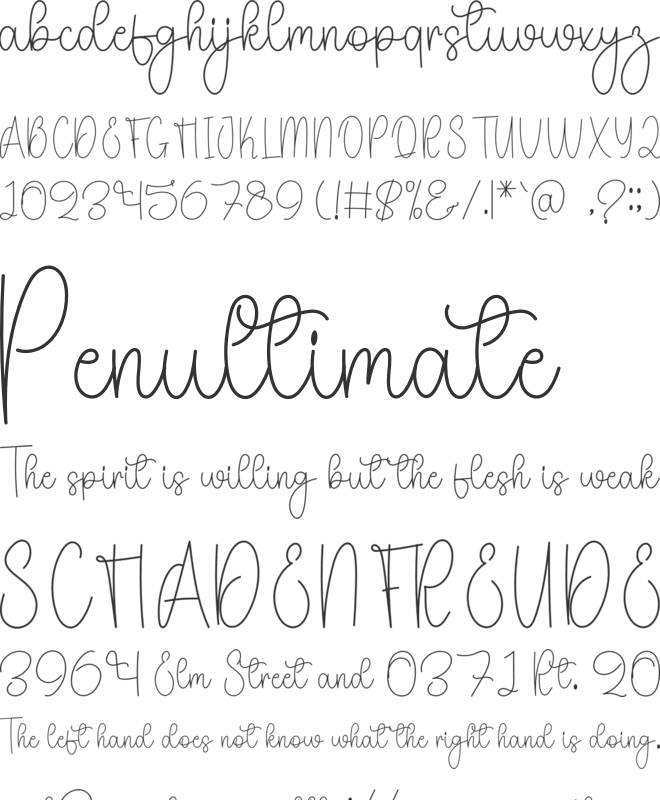 abcdefghijklmnopqrstuvwxyz
ABCDEFGHIJKLMNOPQRSTUVWXYZ
1023456789 (!#$%&/.|*`@ ,?:;)
Penultimate
The spirit is willing but the flesh is weak
SCHADENFREUDE
3964 Elm Street and 0371 Rt. 20
The left hand does not know what the right hand is doing.